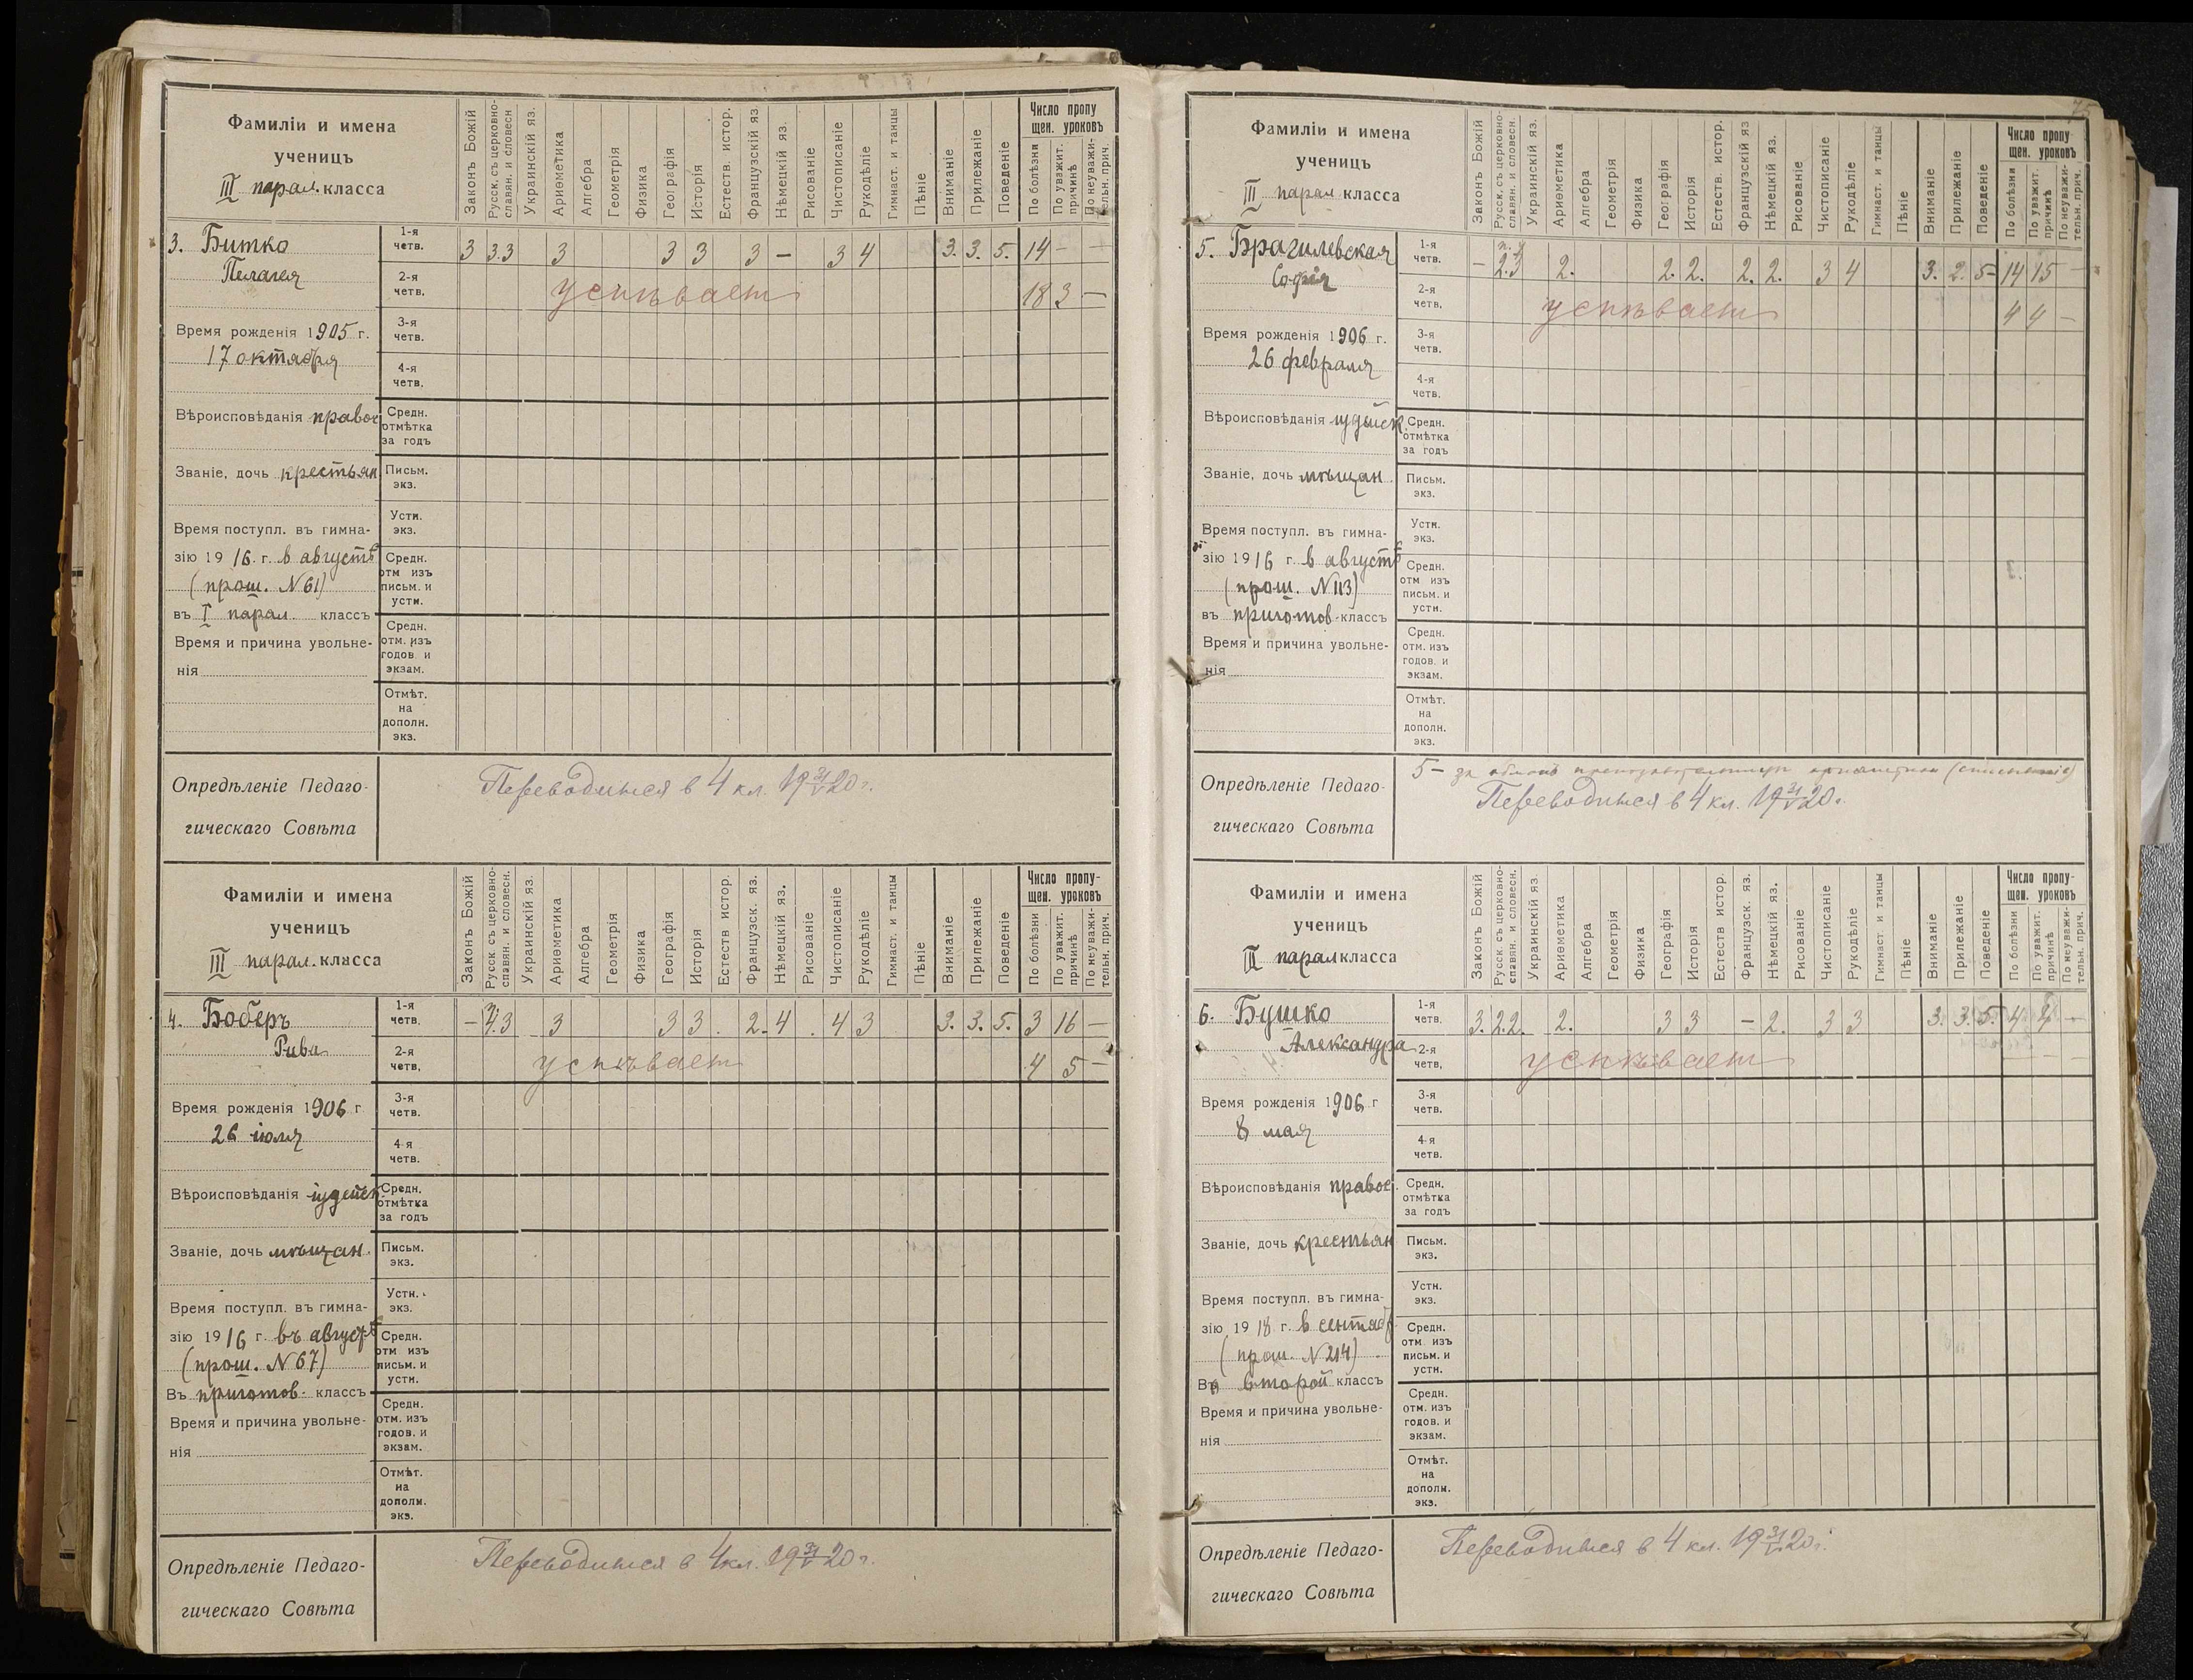 Фамиліи и имена
ученицъ
III парал. класса
Законъ Божій
Русск. съ церковно-славян. и словесн
Украинскій яз.
Ариѳметика
Алгебра
Геометрія
Физика
Географія
Исторія
Естеств. истор.
Французскій яз
Нѣмецкій яз.
Рисованіе
Чистописаніе
Рукодѣліе
Гимнаст. и танцы
Пѣніе
Вниманіе
Прилежаніе
Поведеніе
Число пропу
щен. уроковъ
По болѣзни
По уважит. причинѣ
По неуважи-тельн. прич.
3. Битко
Пелагея
1-я четв. 3 3.3 3 3 3 3 – 3 4 3. 3. 5. 14 – –
2-я четв. успѣвает 18 3 –
Время рожденія 1905 г.
17 октября
3-я четв.
4-я четв.
Вѣроисповѣданія правос
Средн. отмѣтка за годъ
Званіе, дочь крестьян
Письм. экз.
Время поступл. въ гимна-
Устн. экз.
зію 1916. г. в августѣ
Средн. отм изъ письм. и устн.
(прош. N 61)
въ I парал. классъ
Средн. отм. изъ годов. и экзам.
Время и причина увольне-
нія
Отмѣт. на дополн. экз.
Опредѣленіе Педаго-
гическаго Совѣта
Переводится в 4 кл. 19 31/V 20 г.
Фамиліи и имена
ученицъ
III парал. класса
Законъ Божій
Русск. съ церковно-славян. и словесн.
Украинскій яз.
Ариѳметика
Алгебра
Геометрія
Физика
Географія
Исторія
Естеств истор.
Французск. яз.
Нѣмецкій яз.
Рисованіе
Чистописаніе
Рукодѣліе
Гимнаст. и танцы
Пѣніе
Вниманіе
Прилежаніе
Поведеніе
Число пропу-
щен. уроковъ
По болѣзни
По уважит. причинѣ
По неуважи-тельн. прич.
4. Боберъ
Рива
1-я четв. – 3 3 3 3. 2. 4. 4 3 3. 3. 5. 3 16 –
2-я четв. успѣвает 4 5 –
Время рожденія 1906 г
26 іюля
3-я четв.
4 я четв.
Вѣроисповѣданія іудейск.
Средн. отмѣтка за годъ
Званіе, дочь мѣщан.
Письм. экз.
Время поступл. въ гимна-
Устн. экз.
зію 1916 г въ августѣ
Средн. отм изъ письм. и устн.
(прош. N 67)
Въ приготов. классъ
Средн. отм. изъ годов. и экзам.
Время и причина увольне-
нія
Отмѣт. на дополн. экз.
Опредѣленіе Педаго-
гическаго Совѣта
Переводится в 4 кл. 19 31/V 20 г.
75
Фамиліи и имена
ученицъ
III парал класса
Законъ Божій
Русск. съ церковно-славян. и словесн.
Украинскій яз.
Ариѳметика
Алгебра
Геометрія
Физика
Географія
Исторія
Естеств. истор.
Французскій яз
Нѣмецкій яз.
Рисованіе
Чистописаніе
Рукодѣліе
Гимнаст. и танцы
Пѣніе
Вниманіе
Прилежаніе
Поведеніе
Число пропу
щен. уроковъ
По болѣзни
По уважит. причинѣ
По неуважи-тельн. прич.
5. Брагилевская
Софія
1-я четв. – 2.3 2. 2. 2. 2. 2. 3 4 3. 2. 5– 14 15 –
2-я четв. успѣвает 4 4 –
Время рожденія 1906 г.
26 февраля
3-я четв.
4-я четв.
Вѣроисповѣданія іудейск.
Средн. отмѣтка за годъ
Званіе, дочь мѣщан.
Письм. экз.
Время поступл. въ гимна-
Устн. экз.
зію 1916 г в августѣ
Средн. отм изъ письм. и устн.
(прош. N 113)
въ приготов. классъ
Средн. отм. изъ годов. и экзам.
Время и причина увольне-
нія
Отмѣт. на дополн. экз.
5– за
Опредѣленіе Педаго-
гическаго Совѣта
Переводится в 4 кл. 19 31/V 20 г.
Фамиліи и имена
ученицъ
III парал класса
Законъ Божій
Русск. съ церковно-славян. и словесн.
Украинскій яз.
Ариѳметика
Алгебра
Геометрія
Физика
Географія
Исторія
Естеств истор.
Французск. яз.
Нѣмецкій яз.
Рисованіе
Чистописаніе
Рукодѣліе
Гимнаст. и танцы
Пѣніе
Вниманіе
Прилежаніе
Поведеніе
Число пропу-
щен. уроковъ
По болѣзни
По уважит. причинѣ
По неуважи-тельн. прич.
6. Бушко
Александра
1-я четв. 3. 2.2. 2. 3 3 – 2. 3 3 3. 3. 5. 4 4 –
2-я четв. успѣвает – – –
Время рожденія 1906 г
8 мая
3-я четв.
4-я четв.
Вѣроисповѣданія правос.
Средн. отмѣтка за годъ
Званіе, дочь крестьян
Письм. экз.
Время поступл. въ гимна-
Устн. экз.
зію 1918 г. в сентяб
Средн. отм изъ письм. и устн.
(прош. N 214)
Въ второй классъ
Средн. отм. изъ годов. и экзам.
Время и причина увольне-
нія
Отмѣт. на дополн. экз.
Опредѣленіе Педаго-
гическаго Совѣта
Переводится в 4 кл. 19 31/V 20 г.